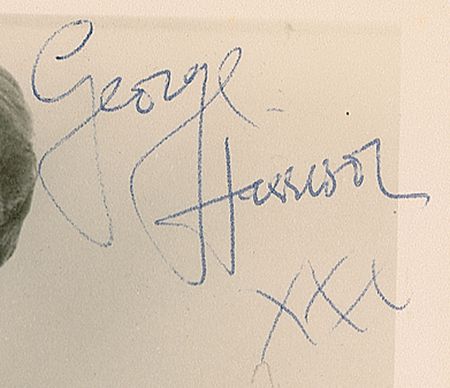 George
Harrison
xxx